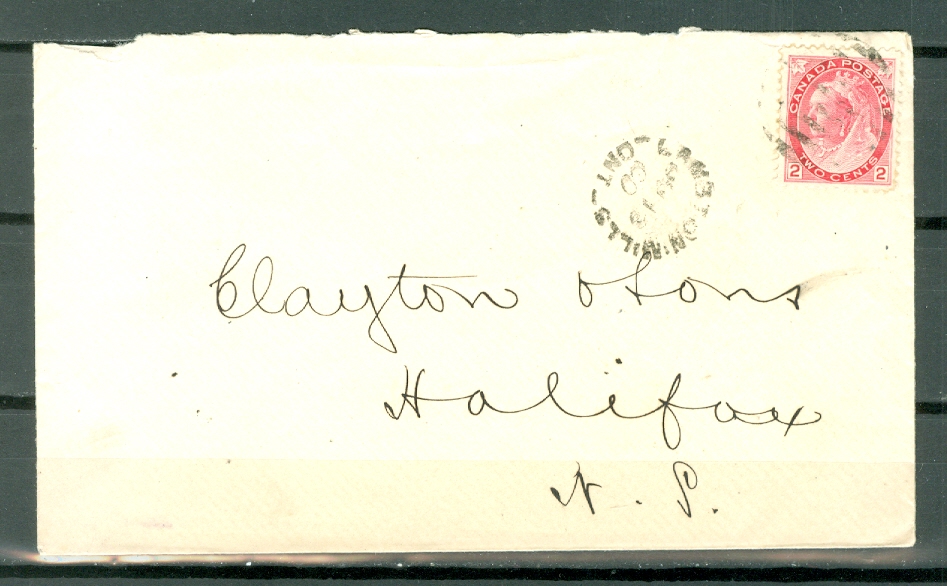 CANADA POSTAGE
TWO CENTS
2 2
LAMBTON·MILLS - ONT -
00
Clayton & Sons
Halifax
N. S.